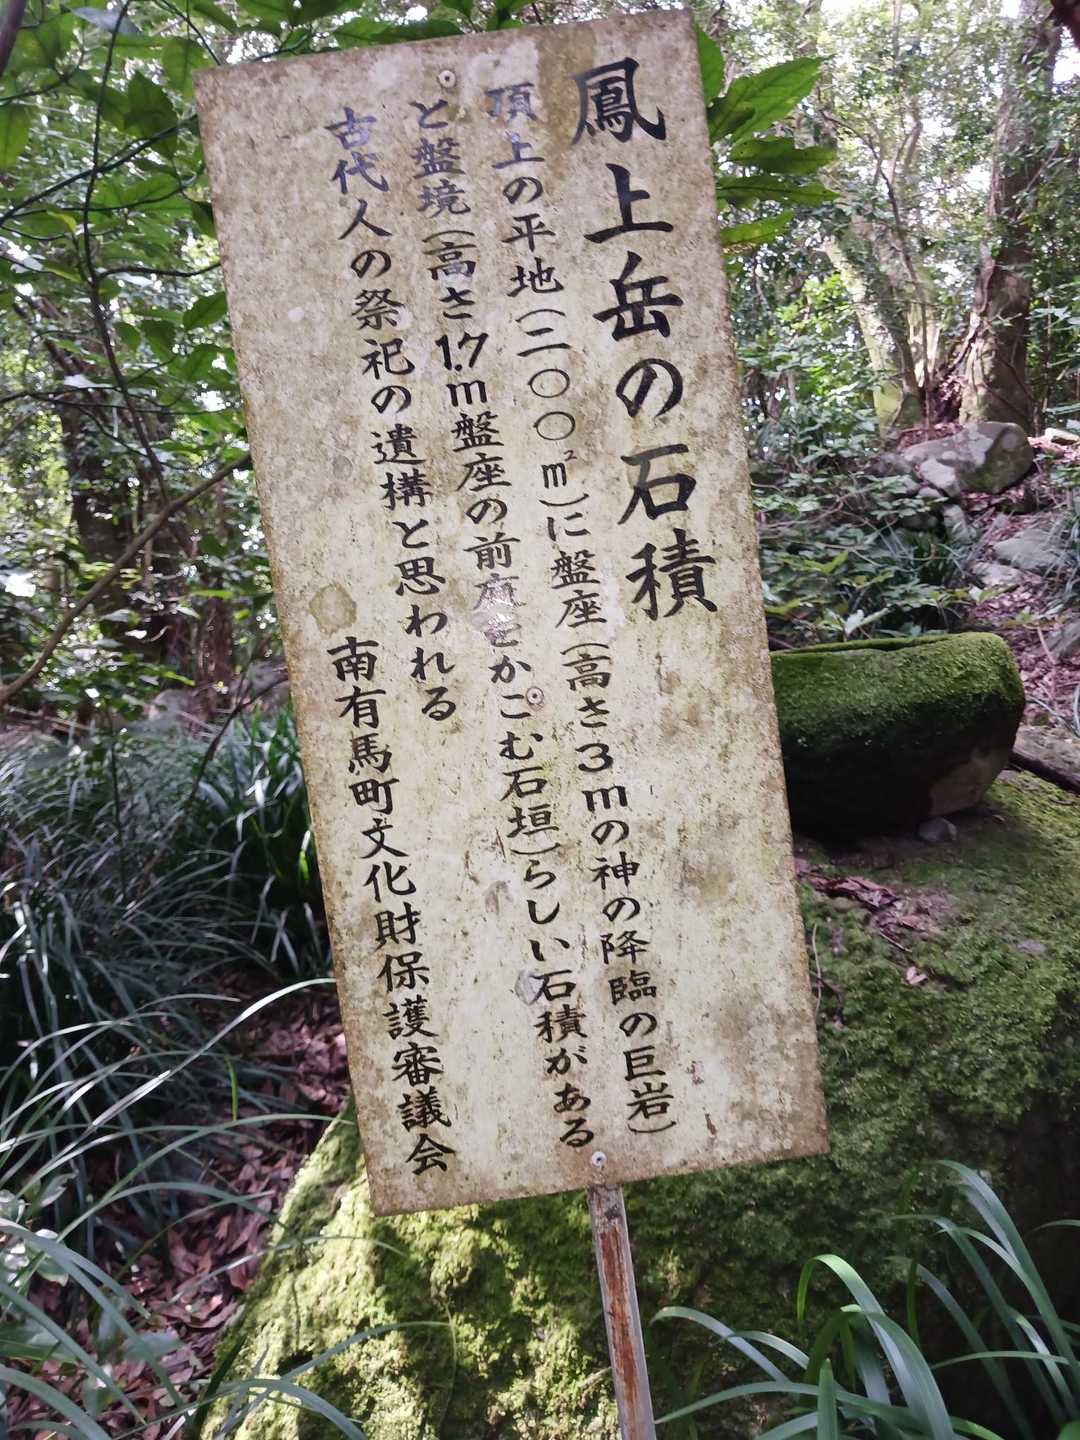 鳳上岳の石積
頂上の平地(二〇〇㎡)に盤座(高さ3mの神の降臨の巨岩)
と盤境(高さ1.7m盤座の前庭をかこむ石垣)らしい石積がある
古代人の祭祀の遺構と思われる
南有馬町文化財保護審議会